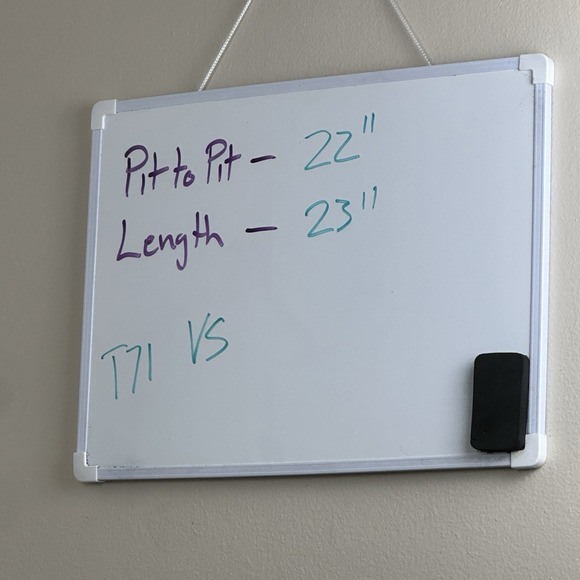 Pit to Pit - 22"
Length - 23"
T71 VS